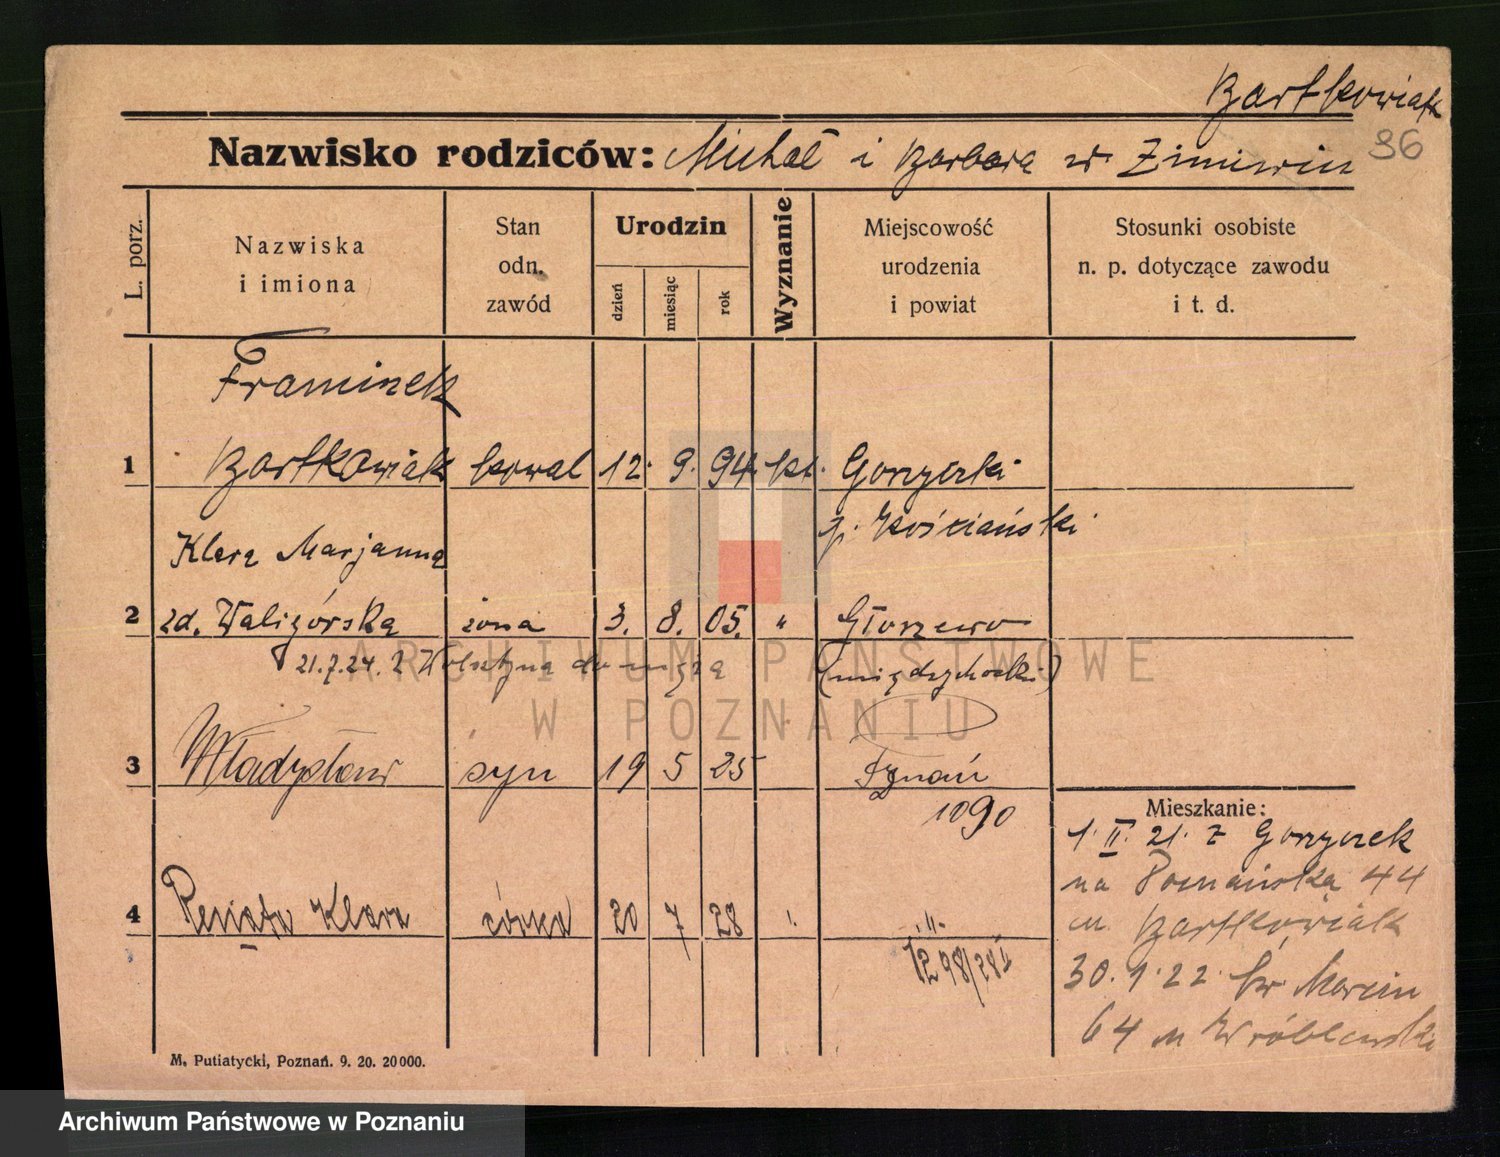 Bartkowiak
96
Nazwisko rodziców: Michał i Barbara w Zimiwin
L. porz.
Nazwiska
i imiona
Stan
odn.
zawód
Urodzin
dzień
miesiąc
rok
Wyznanie
Miejscowość
urodzenia
i powiat
Stosunki osobiste
n. p. dotyczące zawodu
i t. d.
Franciszek
1 Bartkowiak kowal 12. 9. 94. kt. Gorzyczki
p. Kościański
Klara Marjanna
2 zd. Waligórska żona 3. 8. 05. " Głoszewo
21.7.24. z Wolsztyna do męża (międzychodzki)
3 Władysław syn 19 5 25 Poznań
1090
4 Renata Klara córka 20 7 28 " "
1298/28
Mieszkanie:
1. II. 21. z Gorzyczek
na Poznańska 44
m. Bartkowiak
30.1.22. św. Marcin
64 m Wróblewski
M. Putiatycki, Poznań. 9. 20. 20000.
ARCHIWUM PAŃSTWOWE
W POZNANIU
Archiwum Państwowe w Poznaniu